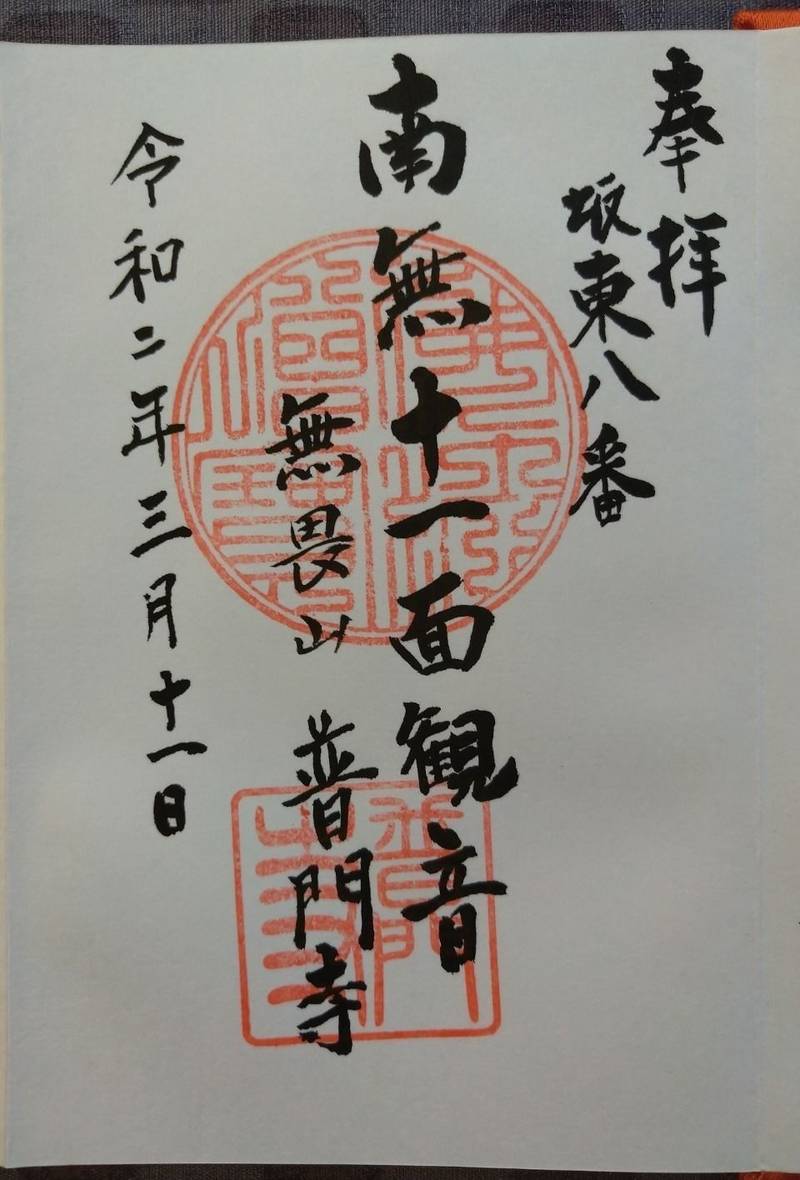 奉拝
坂東八番
南無十一面観音
無畏山 普門寺
令和二年三月十一日